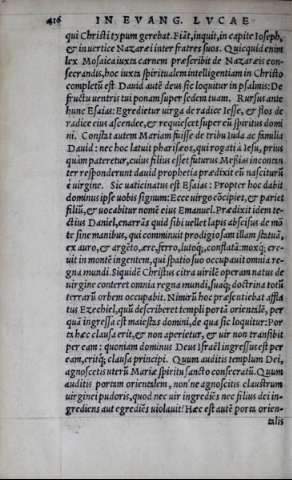 416 IN EVANG. LVCAE
qui Christi typum gerebat. Fiãt, inquit, in capite Ioseph,
& in uertice Nazarei inter fratres suos. Quicquid enim
lex Mosaica iuxta carnem præscribit de Nazaræis con-
secrandis, hoc iuxta spiritualem intelligentiam in Christo
completũ est. Dauid autẽ deus sic loquitur in psalmis: De
fructu uentris tui ponam super sedem tuam. Rursus ante
hunc Esaias: Egredietur uirga de radice Iesse, & flos de
radice eius ascendet, & requiescet super eũ spiritus domi
ni. Constat autem Mariam fuisse de tribu Iuda ac familia
Dauid: nec hoc latuit pharisæos, qui rogati à Iesu, prius
quàm pateretur, cuius filius esset futurus Messias incontan
ter responderunt dauid prophetia prædixit eũ nasciturũ
è uirgine. Sic uaticinatus est Esaias: Propter hoc dabit
dominus ipse uobis signum: Ecce uirgo cõcipiet, & pariet
filiũ, & uocabitur nomẽ eius Emanuel. Prædixit idem te-
ctius Daniel, enarrãs quid sibi uellet lapis abscissus de mõ
te sine manibus, qui comminuit prodigiosam illam statuã,
ex auro, & argẽto, ære, ferro, lutoq́; conflatã: moxq́; cre-
uit in montẽ ingentem, qui spatio suo occupauit omnia re-
gna mundi. Siquidẽ Christus citra uirilẽ operam natus de
uirgine conteret omnia regna mundi, suaq́; doctrina totũ
terrarũ orbem occupabit. Nimirũ hoc præsentiebat affla
tus Ezechiel, quũ describeret templi portã orientalẽ, per
quã ingressa est maiestas domini, de qua sic loquitur: Por
ta hæc clausa erit, & non aperietur, & uir non transibit
per eam: quoniam dominus Deus Israël ingressus est per
eam, eritq́; clausa principi. Quum auditis templum Dei,
agnoscetis uterũ Mariæ spiritu sancto consecratũ. Quum
auditis portam orientalem, non'ne agnoscitis claustrum
uirginei pudoris, quod nec uir ingrediẽs nec filius dei in-
grediens aut egrediẽs uiolauit? Hæc est autẽ porta orien-
talis